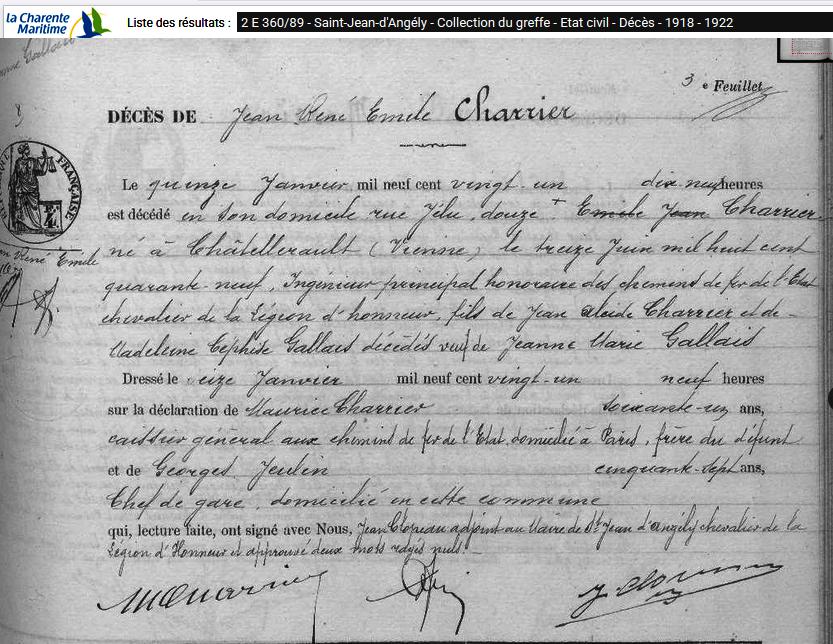 la Charente
Maritime
Liste des résultats : 2 E 360/89 - Saint-Jean-d'Angély - Collection du greffe - Etat civil - Décès - 1918 - 1922
3 e Feuillet
DÉCÈS DE Jean René Emile Charrier
Le quinze Janvier mil neuf cent vingt-un dix-neuf heures
est décédé en son domicile rue Jélu, douze + Emile Jean Charrier
né à Châtellerault (Vienne) le treize Juin mil huit cent
quarante-neuf, Ingénieur principal honoraire des chemins de fer de l'Etat
chevalier de la Légion d'honneur, fils de Jean Alcide Charrier et de
Madeleine Céphise Gallais décédés veuf de Jeanne Marie Gallais
Dressé le seize Janvier mil neuf cent vingt-un neuf heures
sur la déclaration de Maurice Charrier soixante-un ans,
caissier général aux chemins de fer de l'Etat domicilié à Paris, frère du défunt
et de Georges Jeulin cinquante-sept ans,
Chef de gare, domicilié en cette commune
qui, lecture faite, ont signé avec Nous, Jean Clopeau adjoint au Maire de St Jean d'angély chevalier de la
Légion d'Honneur et approuvé deux mots rayés nuls.
FRANÇAISE
René Emile